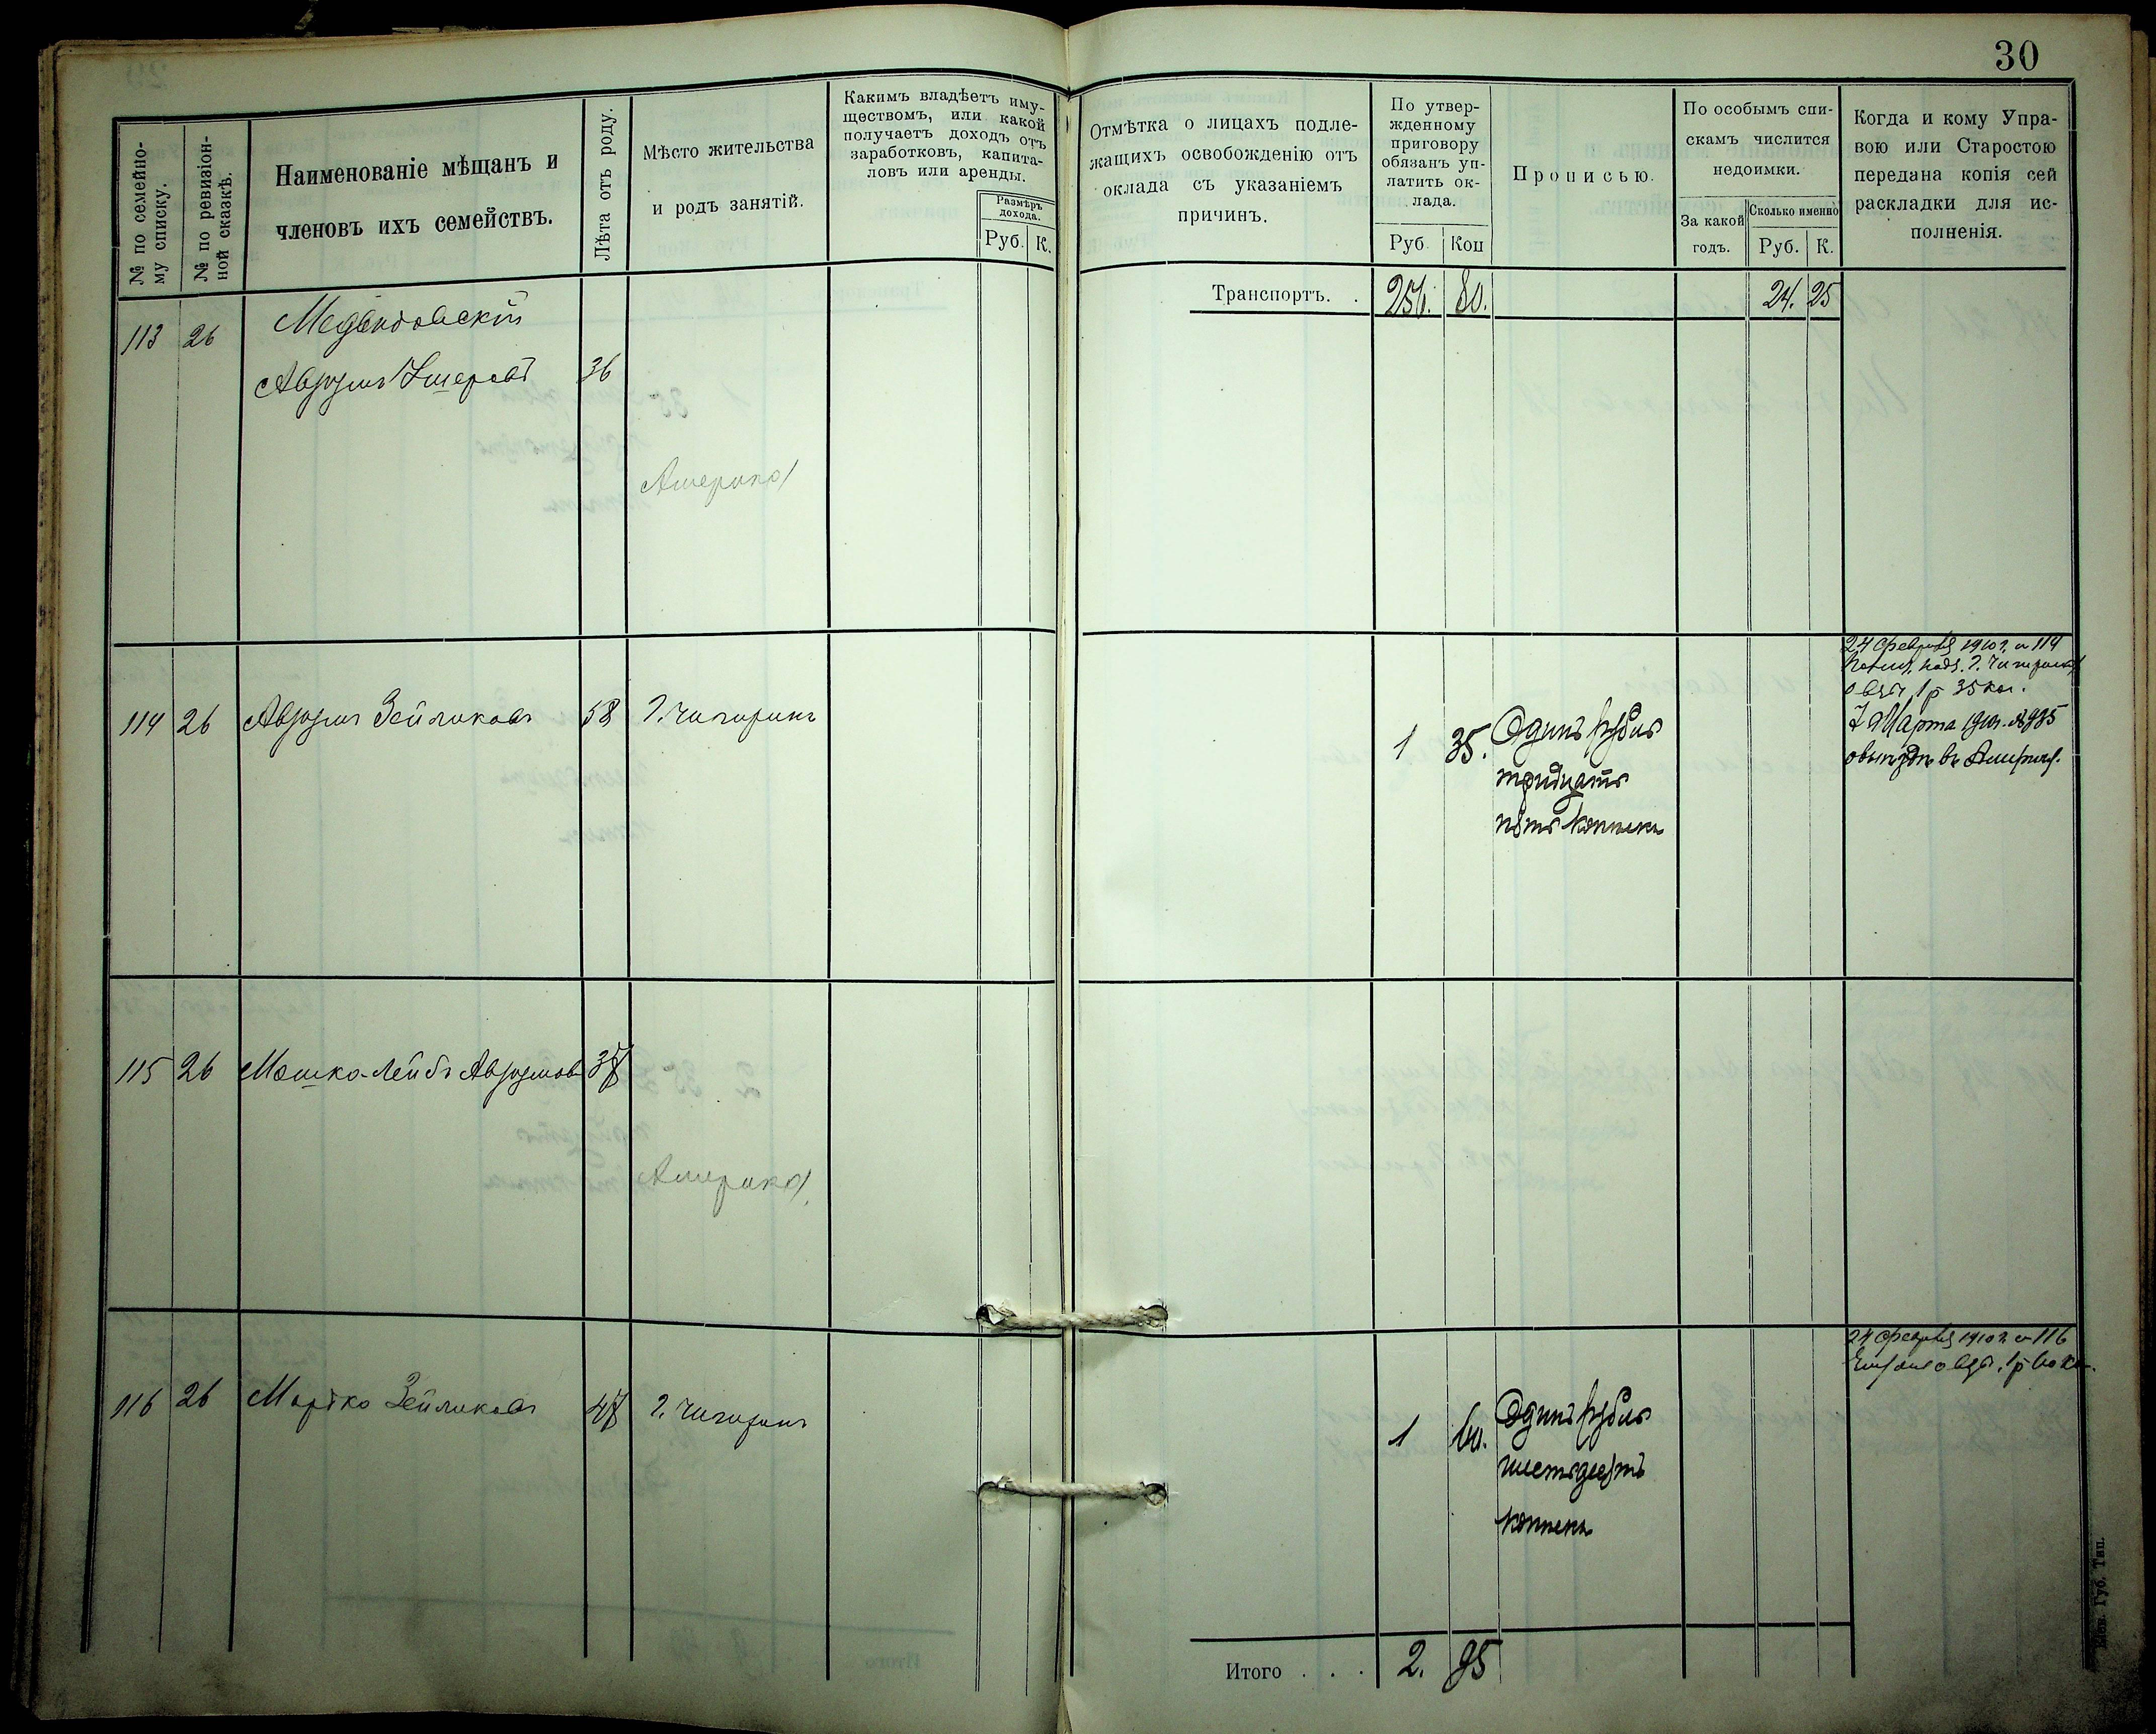 30
№ по семейно-
му списку.
№ по ревизіон-
ной сказкѣ.
Наименованіе мѣщанъ и
членовъ ихъ семействъ.
Лѣта отъ роду.
Мѣсто жительства
и родъ занятій.
Какимъ владѣетъ иму-
ществомъ, или какой
получаетъ доходъ отъ
заработковъ, капита-
ловъ или аренды.
Размѣръ
дохода.
Руб. К.
Отмѣтка о лицахъ подле-
жащихъ освобожденію отъ
оклада съ указаніемъ
причинъ.
По утвер-
жденному
приговору
обязанъ уп-
латить ок-
лада.
Руб. Коп
Прописью.
По особымъ спи-
скамъ числится
недоимки.
За какой
годъ.
Сколько именно
Руб. К.
Когда и кому Упра-
вою или Старостою
передана копія сей
раскладки для ис-
полненія.
Транспортъ. . 256. 80. 24. 25
113 26
Аврумъ Ушеровъ 36
Америка
114 26 Аврумъ Зейликовъ 58 г. Чигиринъ
1 35. Одинъ рубль
тридцать
пять копѣекъ
24 февраля 1910 г. № 114
г. Чигирина
о взы. 1 р 35 коп.
7 Марта 1910 г. № 995
о выѣздѣ въ Америку.
115 26 Мошко-Лейбъ Аврумовъ 37
Америка
116 26 Мортко Зейликовъ 47 г. Чигиринъ
1 60. Одинъ рубль
шестьдесятъ
копѣекъ
24 февраля 1910 г. № 116
о взы. 1 р 60 коп.
Итого . . . 2. 95
Губ. Тип.